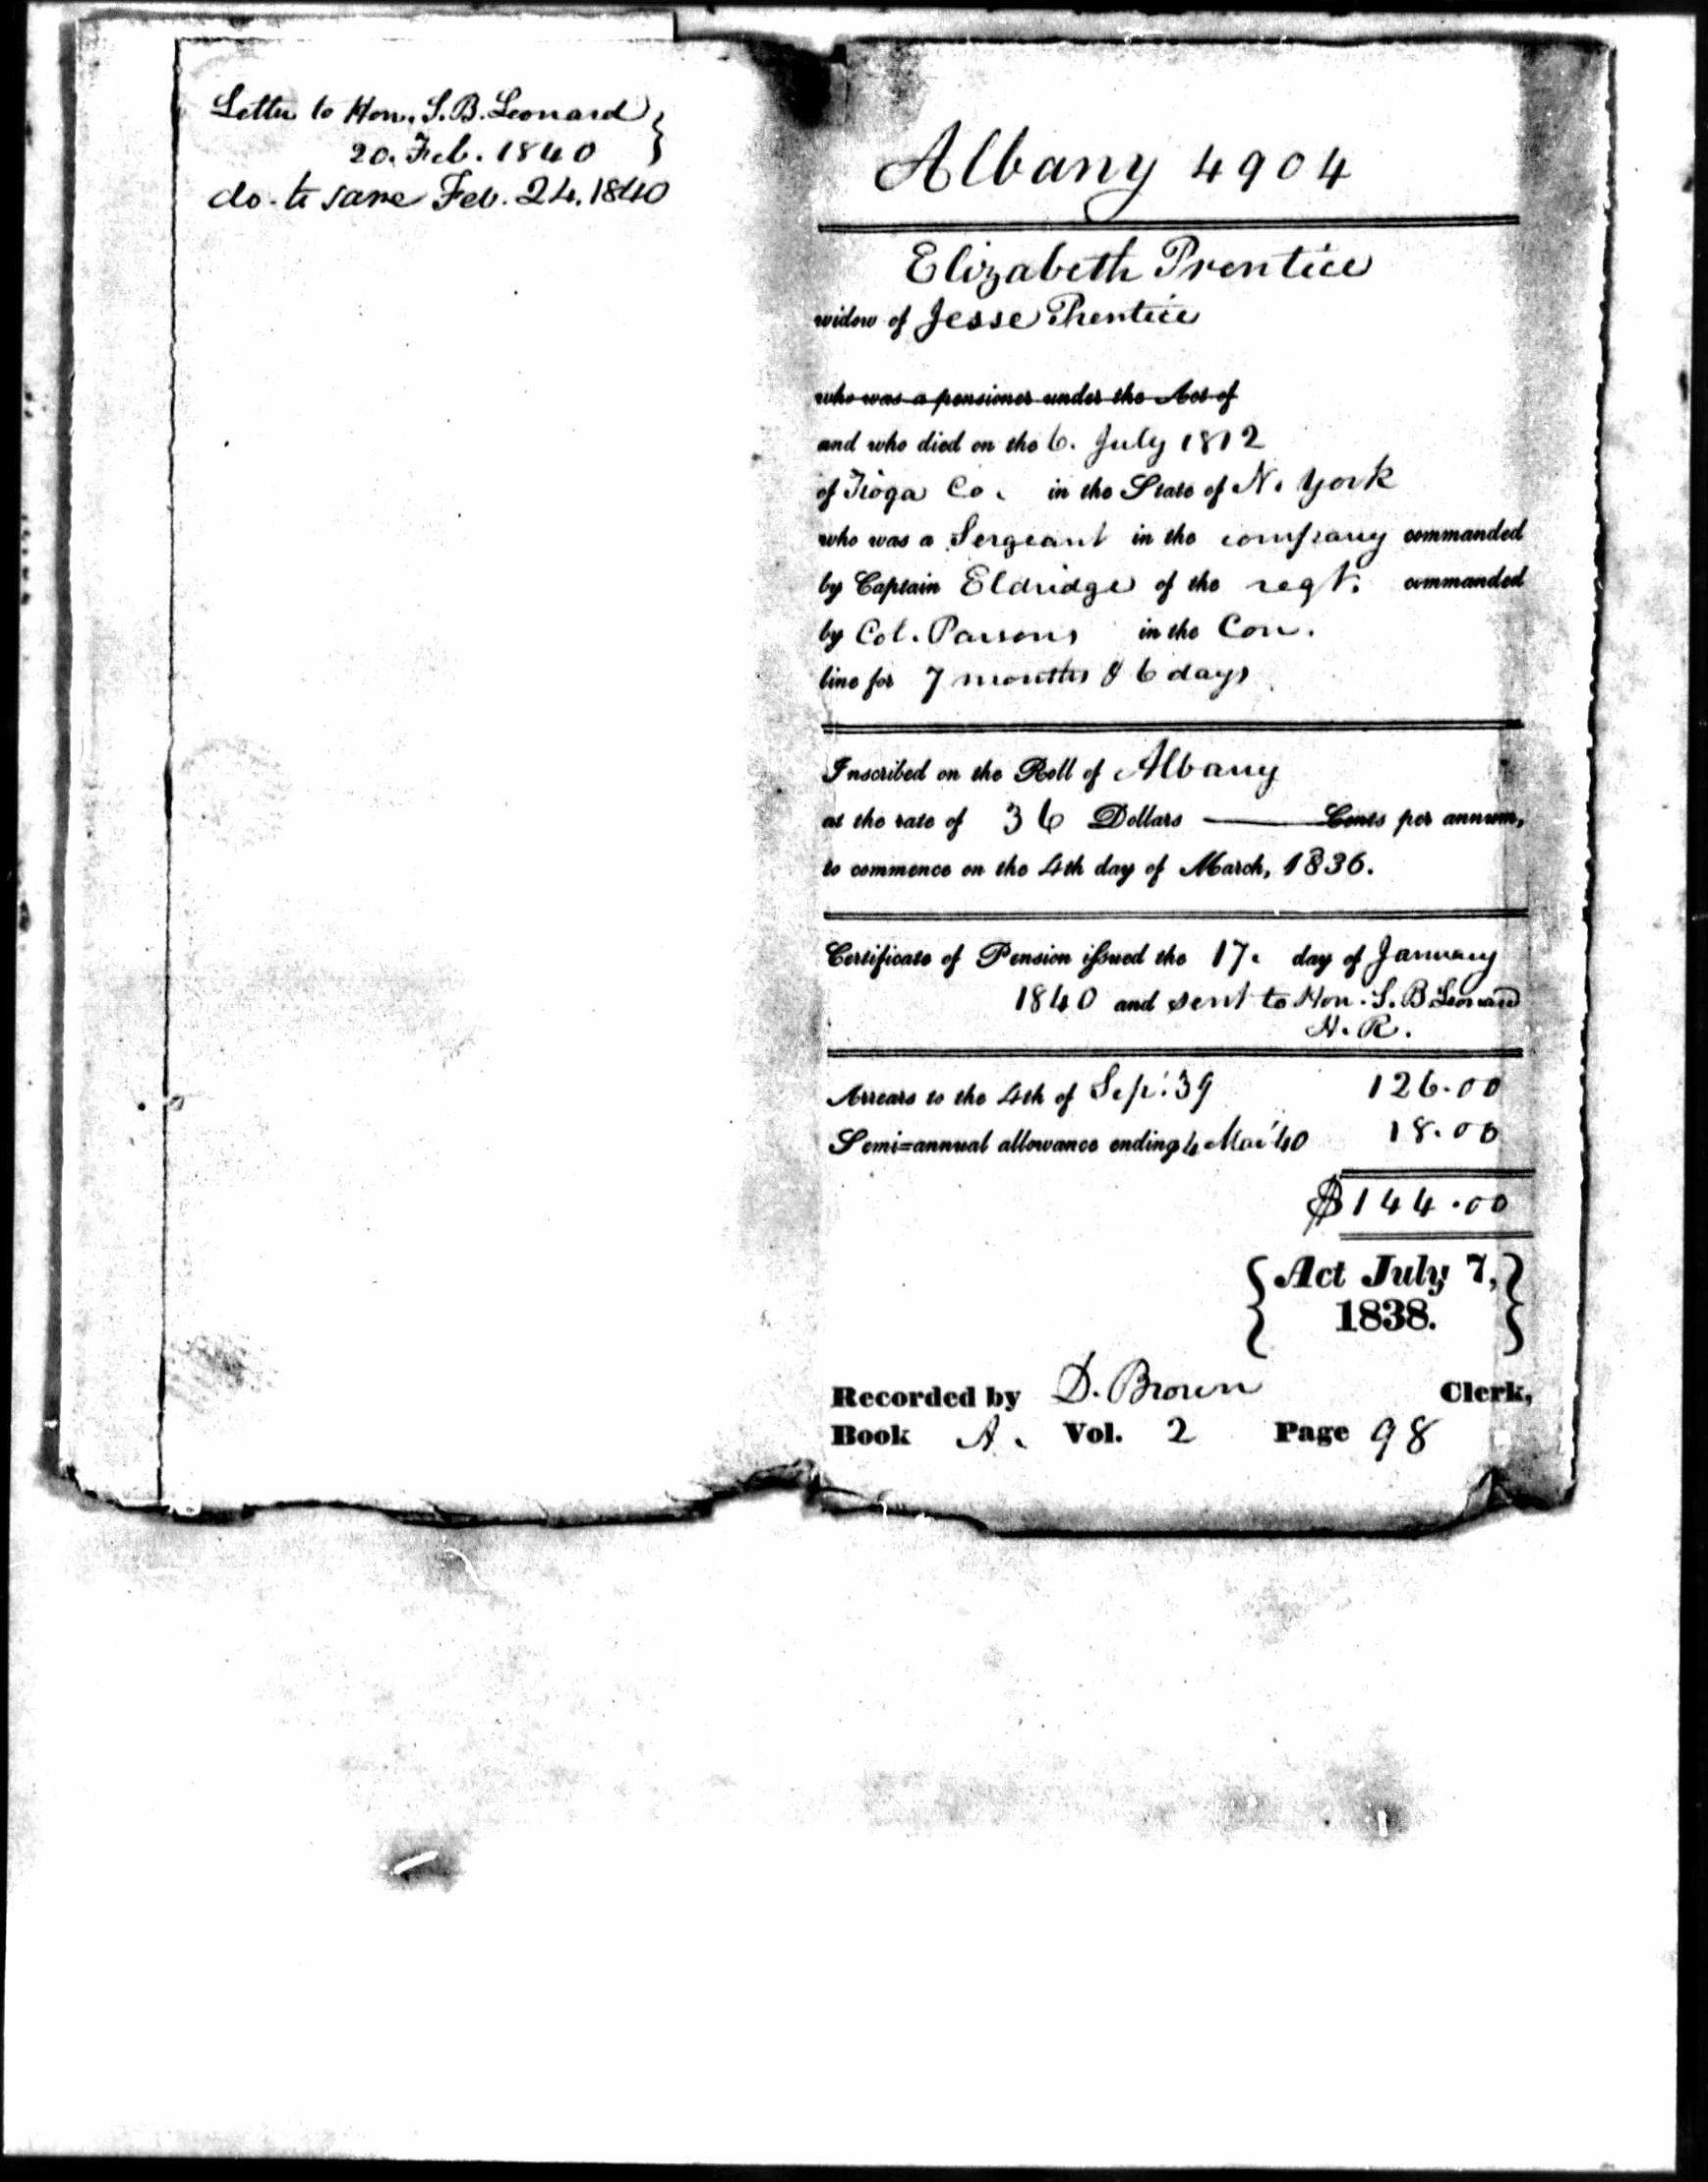 Letter to Hon. S. B. Leonard }
20. Feb. 1840
do. to same Feb. 24. 1840
Albany 4904
Elizabeth Prentice
widow of Jesse Prentice
who was a pensioner under the Act of
and who died on the 6. July 1812
of Tioga Co. in the State of N. York
who was a Sergeant in the company commanded
by Captain Eldridge of the regt. commanded
by Col. Parsons in the Con.
line for 7 months & 6 days
Inscribed on the Roll of Albany
at the rate of 36 Dollars —— Cents per annum,
to commence on the 4th day of March, 1836.
Certificate of Pension issued the 17. day of January
1840 and sent to Hon. S. B Leonard
H. R.
Arrears to the 4th of Sep: 39 126.00
Semi=annual allowance ending 4 Mar '40 18.00
$144.00
{Act July 7,}
1838.
Recorded by D. Brown Clerk,
Book A. Vol. 2 Page 98